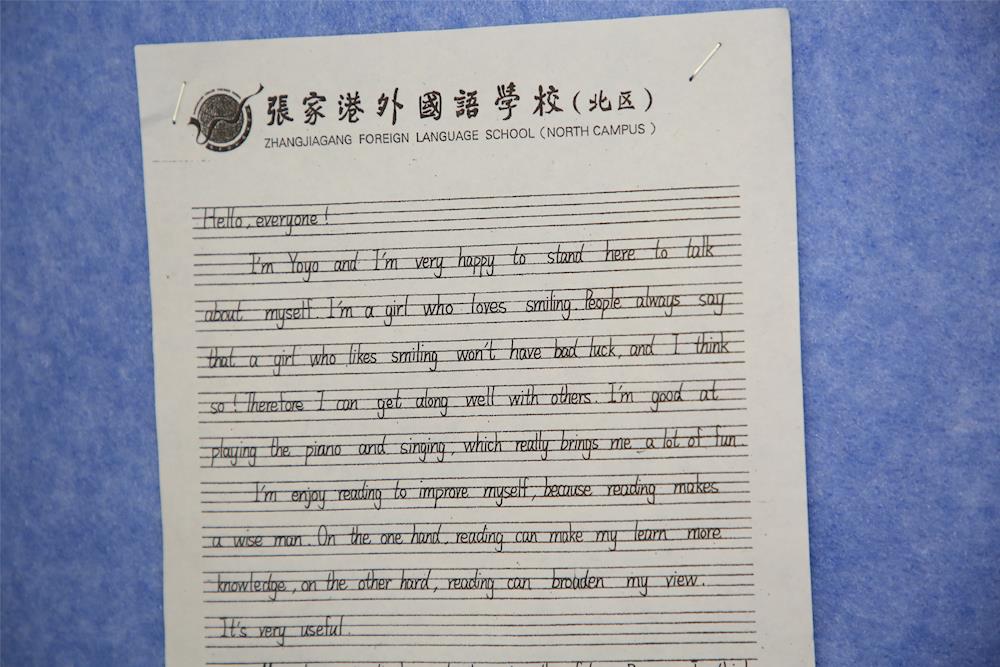 張家港外國語學校(北区)
ZHANGJIAGANG FOREIGN LANGUAGE SCHOOL (NORTH CAMPUS)
Hello, everyone!
I'm Yoyo and I'm very happy to stand here to talk
about myself. I'm a girl who loves smiling. People always say
that a girl who likes smiling won't have bad luck, and I think
so! Therefore I can get along well with others. I'm good at
playing the piano and singing, which really brings me a lot of fun.
I'm enjoy reading to improve myself, because reading makes
a wise man. On the one hand, reading can make my learn more
knowledge, on the other hard, reading can broaden my view.
It's very useful.